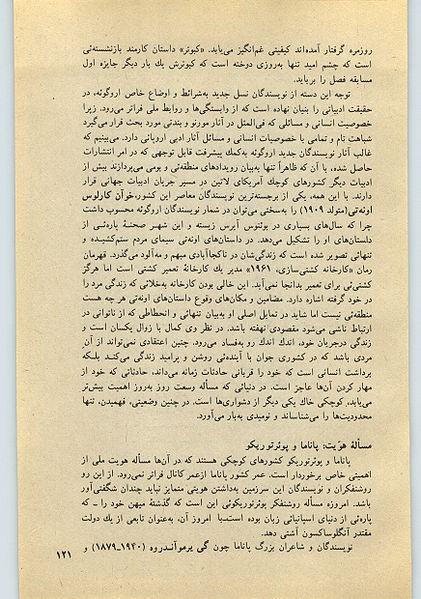 روزمره گرفتار آمده‌اند کیفیتی غم‌انگیز می‌یابد. «کبوتر» داستان کارمند بازنشسته‌ئی
است که چشم امید تنها به‌روزی دوخته است که کبوترش یك بار دیگر جایزه اول
مسابقه فصل را برباید.
توجه این دسته از نویسندگان نسل جدید به‌شرائط و اوضاع خاص اروگوئه، در
حقیقت ادبیاتی را بنیان نهاده است که از وابستگی‌ها و روابط ملی فراتر می‌رود. زیرا
خصوصیت انسانی و مسائلی که فی‌المثل در آثار مورنو و بندتی مورد بحث قرار می‌گیرد
شباهت تام و تمامی با خصوصیات انسانی و مسائل آثار ادبی اروپائی دارد. می‌بینیم که
غالب آثار نویسندگان جدید اروگوئه به‌کمك پیشرفت قابل توجهی که در امر انتشارات
حاصل شده، با آن که ظاهراً تنها به‌بیان رویدادهای منطقه‌ئی و بومی می‌پردازند بیش از
ادبیات دیگر کشورهای کوچك آمریکای لاتین در مسیر جریان ادبیات جهانی قرار
دارند. با این همه، یکی از برجسته‌ترین نویسندگان معاصر این کشور، خوآن کارلوس
اونه‌تی (متولد ۱۹۰۹) را به‌سختی می‌توان در شمار نویسندگان اروگوئه محسوب داشت
چرا که سال‌های بسیاری در بوئنوس آیرس زیسته و این شهر صحنهٔ پاره‌ئی از
داستان‌های او را تشکیل می‌دهد. در داستان‌های اونه‌تی سیمای مردم ستم‌کشیده و
تنهائی تصویر شده است که زندگی‌شان در ناکجاآبادی مبهم و مه‌آلود می‌گذرد. قهرمان
رمان «کارخانه کشتی‌سازی، ۱۹۶۱» مدیر یك کارخانهٔ تعمیر کشتی است اما هرگز
کشتی‌ئی برای تعمیر بدانجا نمی‌آید. این خالی بودن کارخانه به‌خلائی که زندگی مرد را
در خود گرفته اشاره دارد. مضامین و مکان‌های وقوع داستان‌های اونه‌تی هر چه هست
منطقه‌ئی نیست اما شاید در تمایل اصلی او به‌بیان تنهائی و انحطاطی که از ناتوانی در
ارتباط ناشی می‌شود مقصودی نهفته باشد. در نظر وی کمال با زوال یکسان است و
زندگی درجریان خود، اندك اندك رو به‌فساد می‌رود. چنین اعتقادی نمی‌تواند از آن
مردی باشد که در کشوری جوان با آینده‌ئی روشن و پرامید زندگی می‌کند بلکه
برداشت انسانی است که خود را قربانی حادثات زمانه می‌داند، حادثاتی که خود از
مهار کردن آن‌ها عاجز است. در دنیائی که مسأله وسعت روز به‌روز اهمیت بیش‌تر
می‌یابد، کوچکی خاك یکی دیگر از دشواری‌ها است. در چنین وضعیتی، فهمیدن، تنها
محدودیت‌ها را می‌شناساند و نومیدی به‌بار می‌آورد.
مسألهٔ هویّت: پاناما و پوئرتوریکو
پاناما و پوئرتوریکو کشورهای کوچکی هستند که در آن‌ها مسأله هویت ملی از
اهمیتی خاص برخوردار است. عمر کشور پاناما ازعمر کانال فراتر نمی‌رود. از این رو
روشنفکران و نویسندگان این سرزمین به‌داشتن هویتی متمایز نباید چندان شگفتی‌آور
باشد. امروزه مسأله روشنفکر پوئرتوریکوئی این است که گذشتهٔ میهن خود را ـ که
پاره‌ئی از دنیای اسپانیائی زبان بوده است‌ـ‌با امروز آن، به‌عنوان تابعی از یك دولت
مقتدر آنگلوساکسون آشتی دهد.
نویسندگان و شاعران بزرگ پاناما چون گی یرموآنــدروه (۱۹۴۰ـ۱۸۷۹) و
۱۲۱